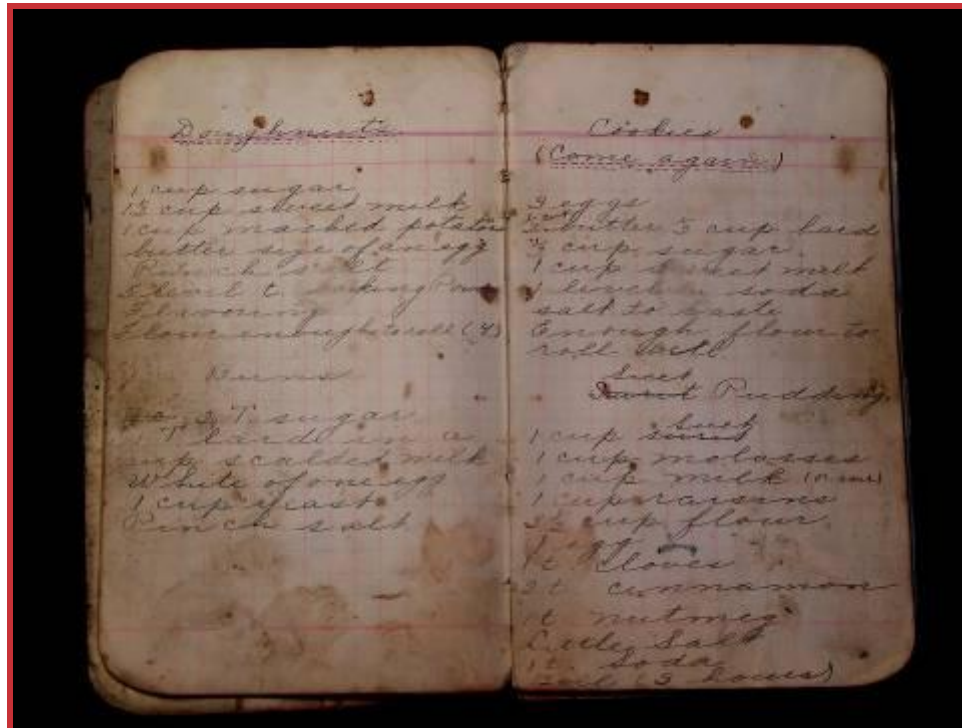 Doughnuts
1 cup sugar
1 3 cup sweet milk
1 cup mashed potatoe
butter size of an egg
Pinch salt
level t. Baking Pow
Flavoring
Flour enough to roll (4)
Buns
3 T. sugar
1 T lard in a
cup scalded milk
White of one egg
1 cup yeast
Pinch salt
Cookies
(Come again)
3 eggs
butter cup lard
cup sugar
1 cup sweet milk
1 level soda
salt to taste
Enough flour to
roll
Suet
Pudding
Suet
1 cup
1 cup molasses
1 cup milk
1 cup raisins
cup flour
1 egg
1 t Cloves
2 t cunnamon
1 t nutmeg
Little Salt
1 t. Soda
(3 hours)